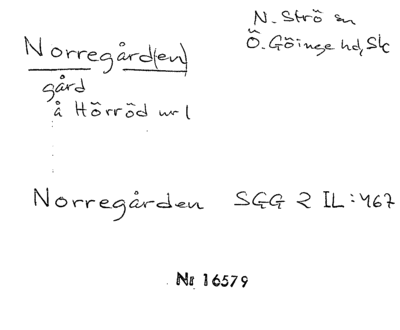 N. Strö sn
Norregård(en)
Ö. Göinge hd, Sk
gård
å Hörröd nr 1
Norregården SGG 2 IL:467
Nr 16579